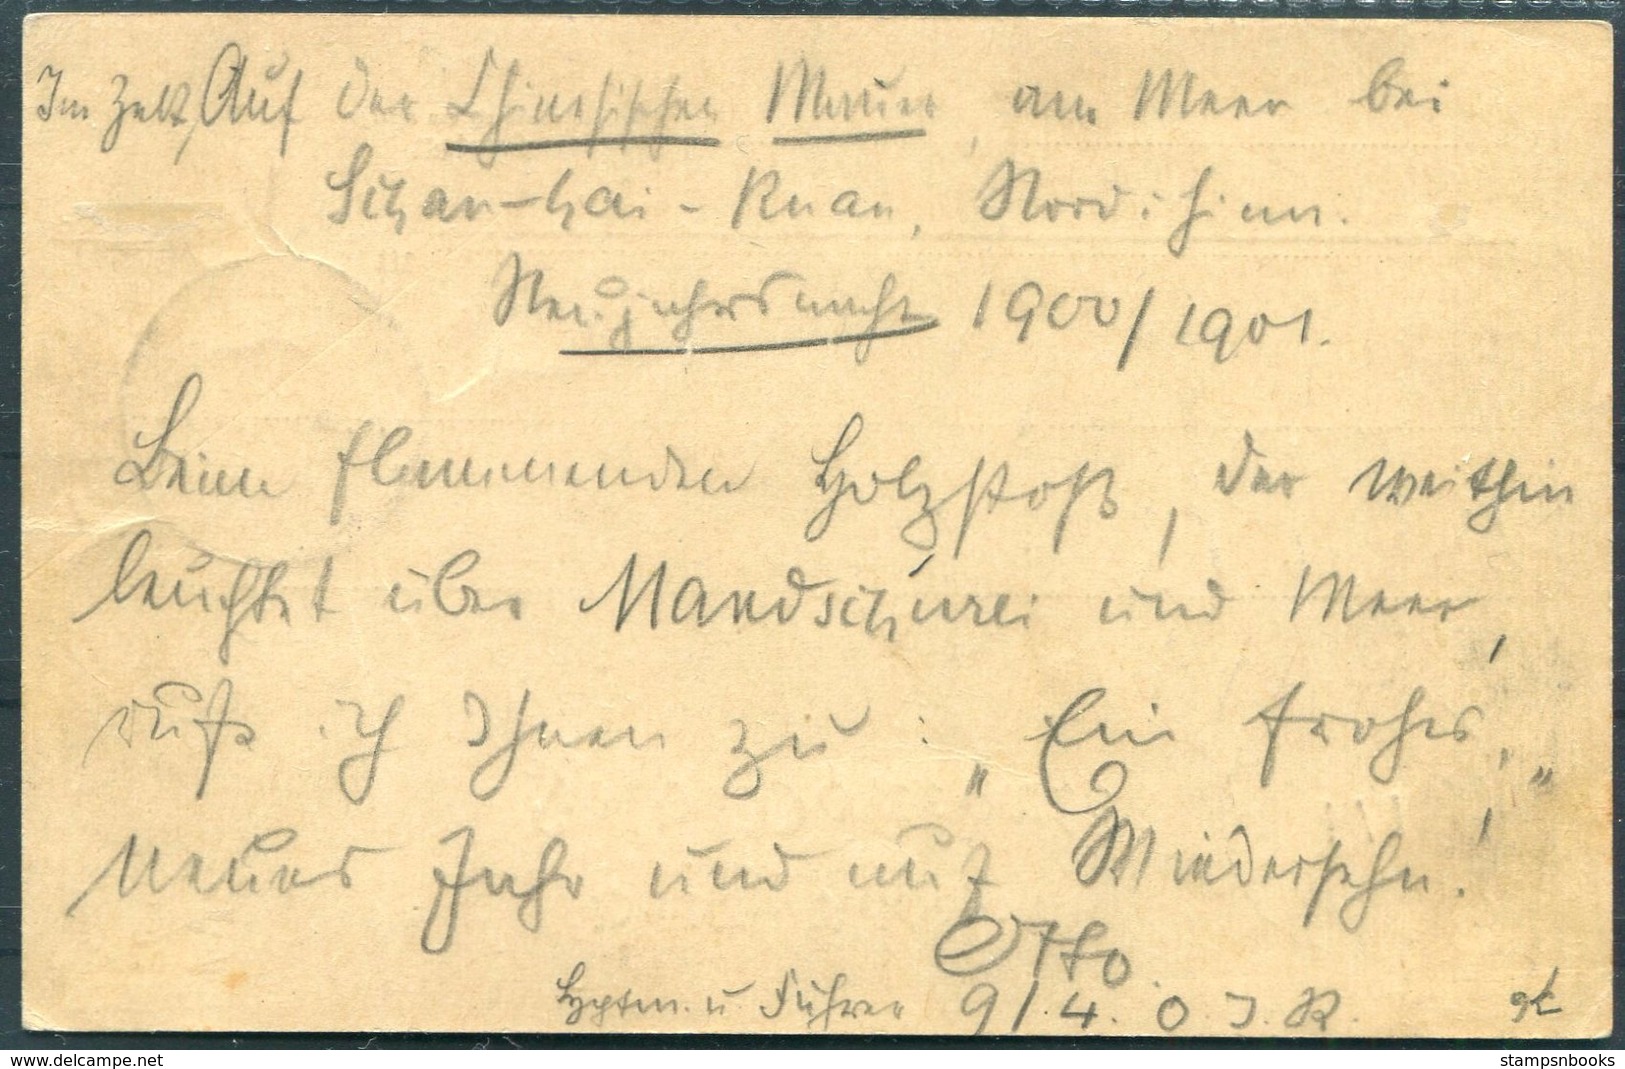 Im Zelt, Auf der Chinesischen Mauer, am Meer bei
Schan-hai-Kuan, Nordchina.
Neujahrsnacht 1900/1901.
Beim flammenden Holzstoß, der weithin
leuchtet über Mandschurei und Meer,
rufe ich Ihnen zu: „Ein frohes,
neues Jahr und auf Wiedersehn!"
Otto.
Hptm. u. Führer 9/.4. O.J.R.
stampsnbooks